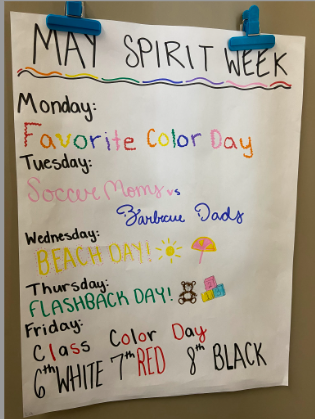 MAY SPIRIT WEEK
Monday:
Favorite Color Day
Tuesday:
Soccer Moms vs
Barbecue Dads
Wednesday:
BEACH DAY!
Thursday:
FLASHBACK DAY!
Friday:
Class Color Day
6th WHITE 7th RED 8th BLACK